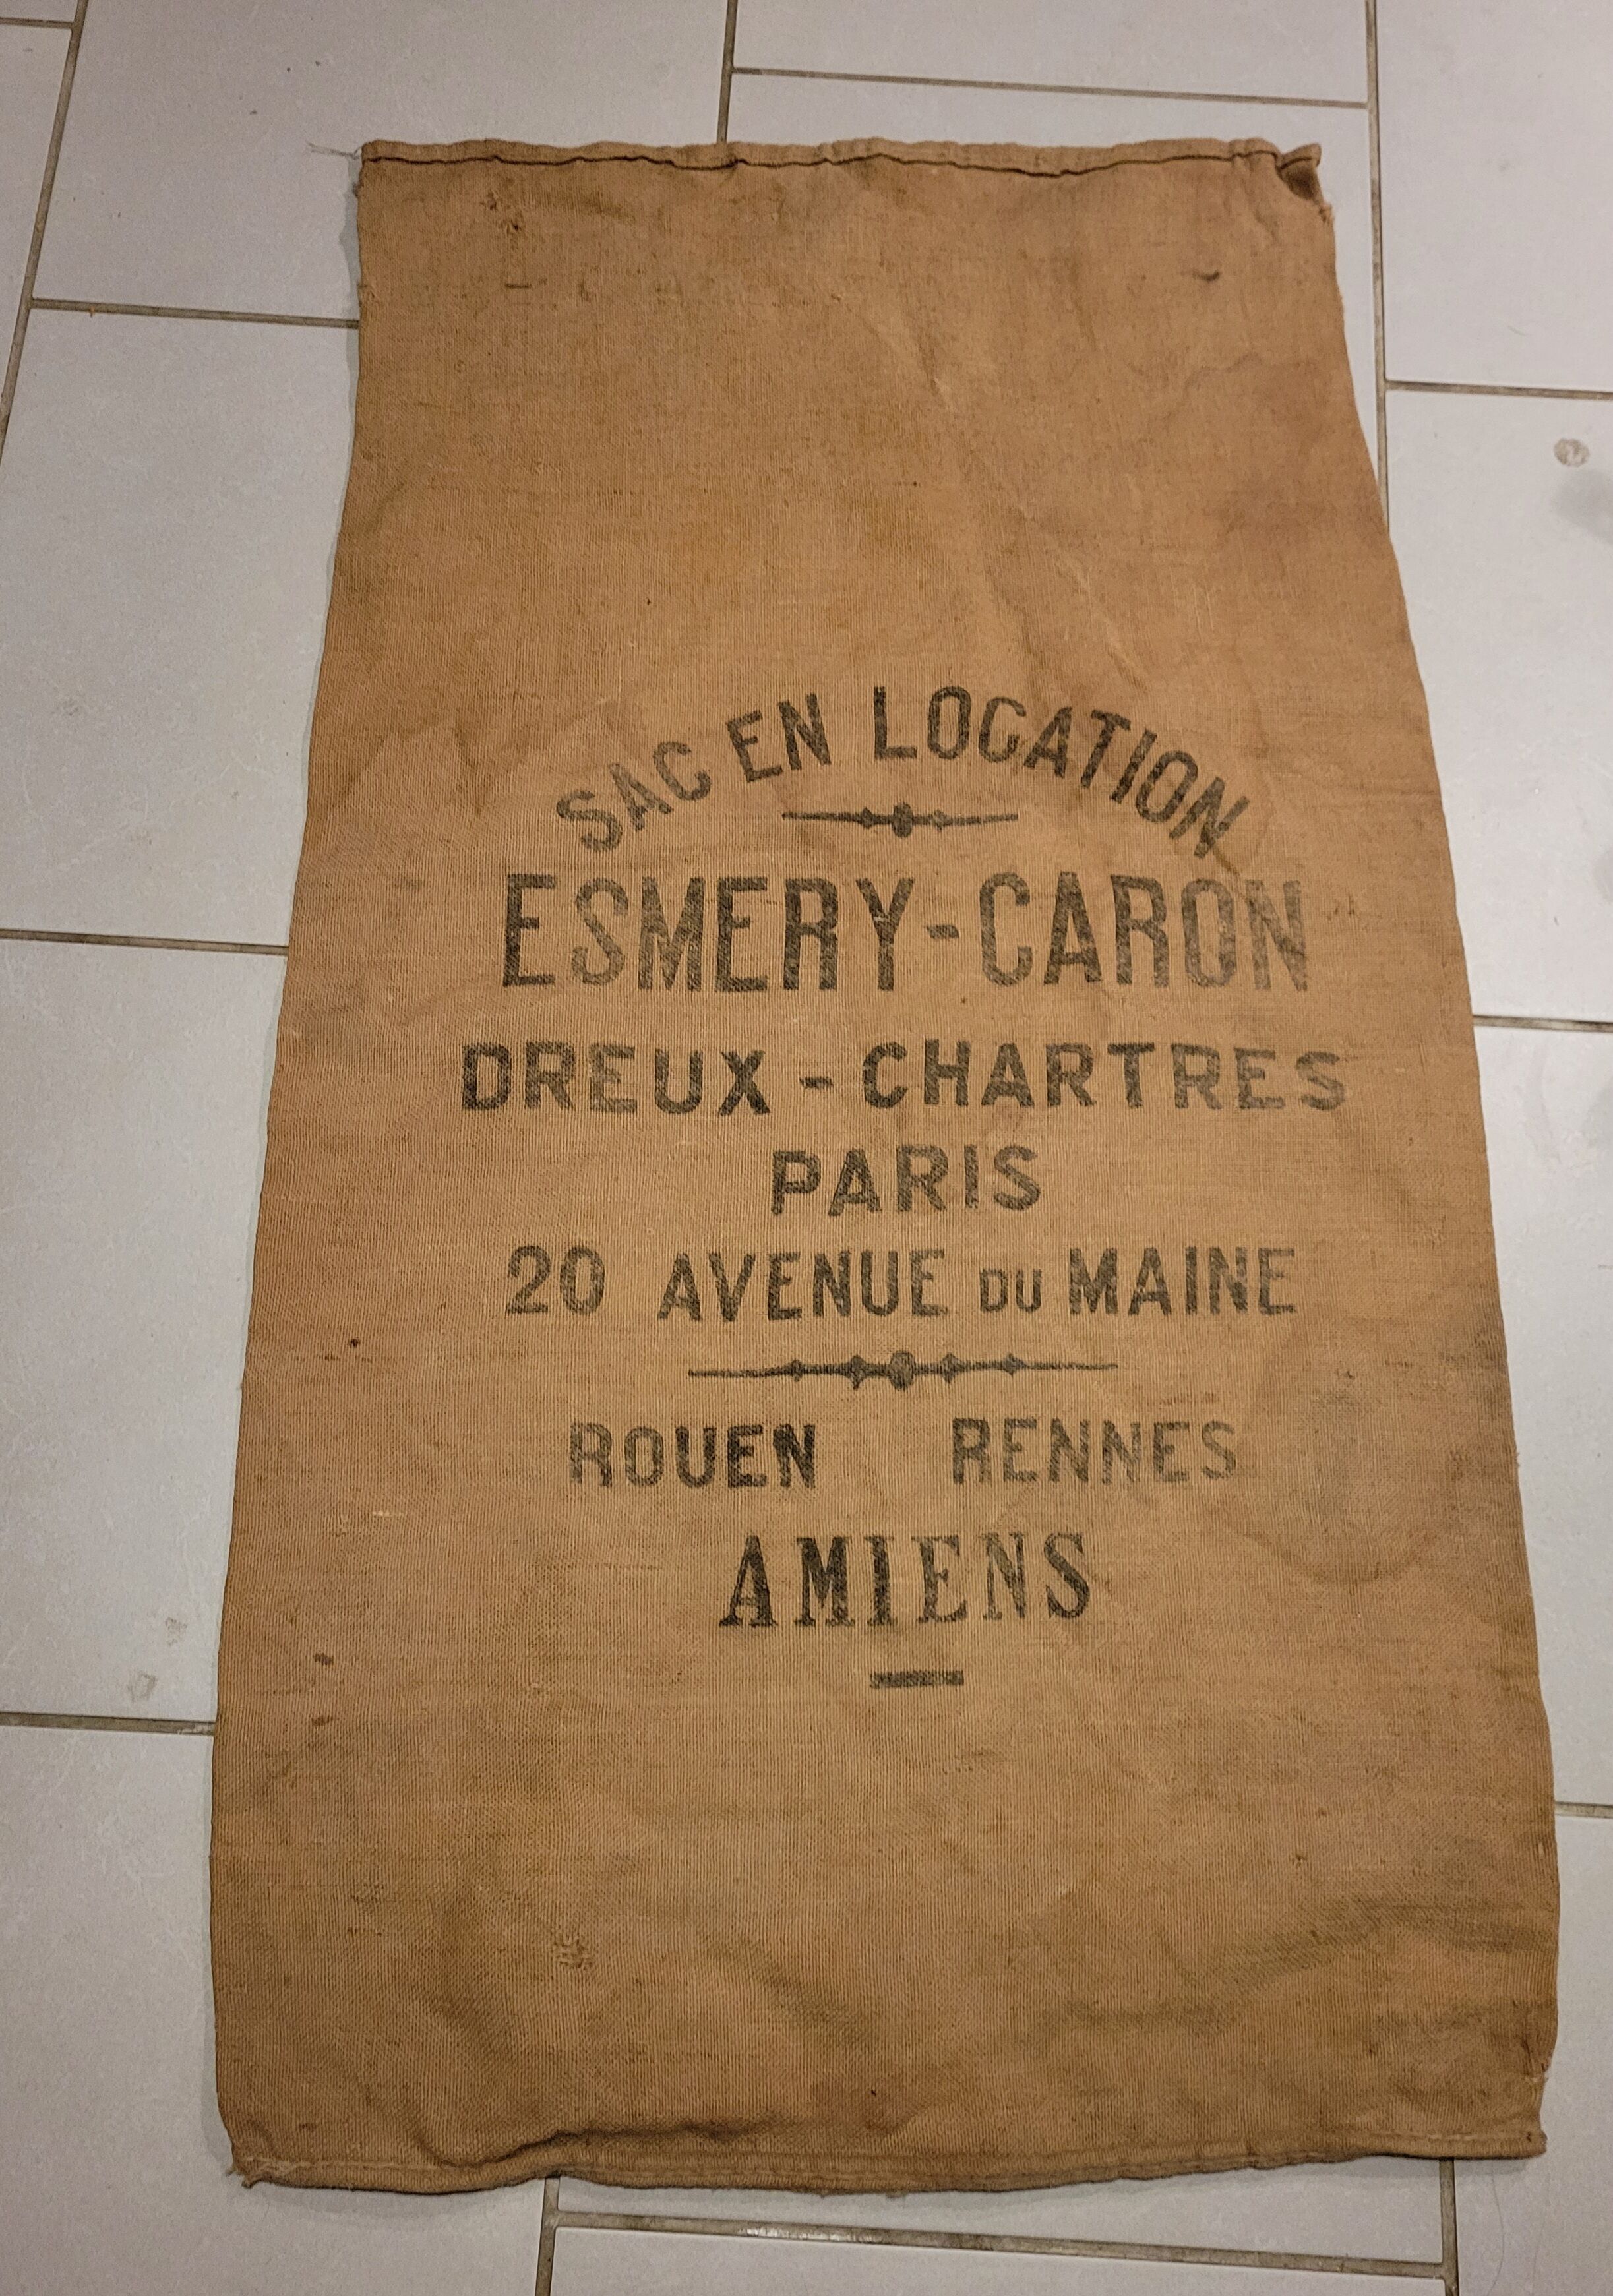 SAC EN LOCATION
ESMERY-CARON
DREUX - CHARTRES
PARIS
20 AVENUE DU MAINE
ROUEN RENNES
AMIENS